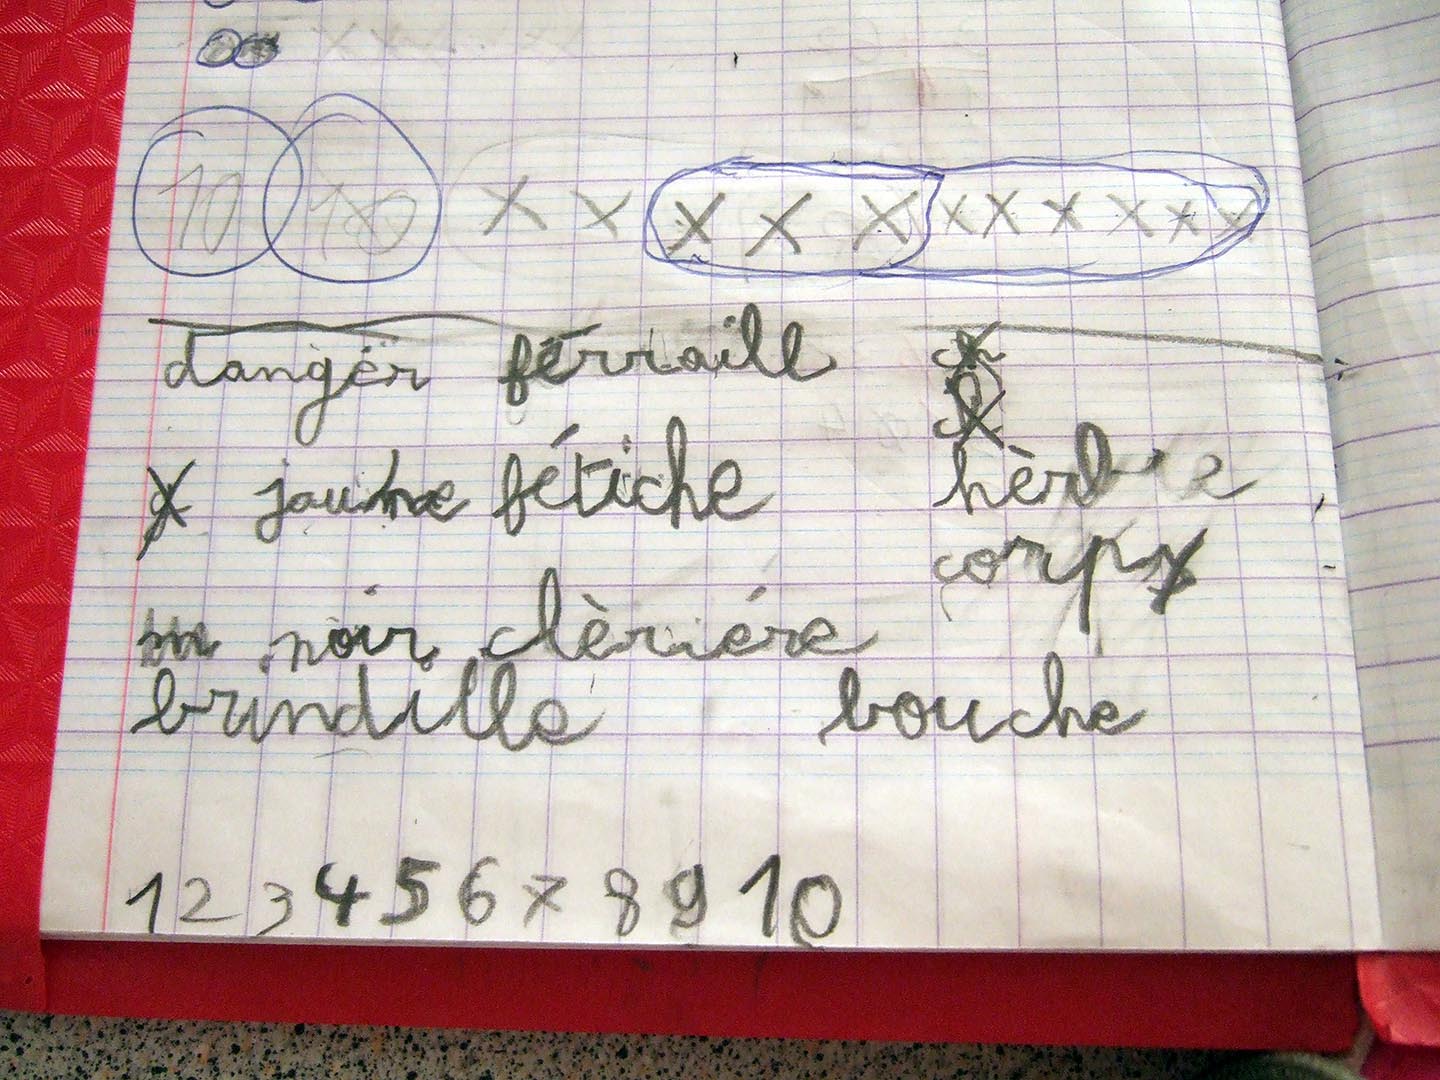 10 10 X X X X X X X X X X X
dangër fërraill
jaune fétiche hèrbe
corps
noir clèriére
brindille bouche
1 2 3 4 5 6 7 8 9 10